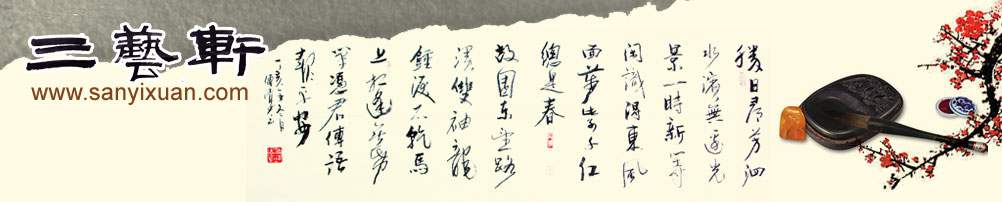 三藝軒
www.sanyixuan.com
勝日尋芳泗
水濱無邊光
景一時新等
閑識得東風
面萬紫千红
總是春
故園東望路
漫雙袖龍
鍾淚不乾馬
上相逢無紙
筆憑君傳語
報平安
丁亥年